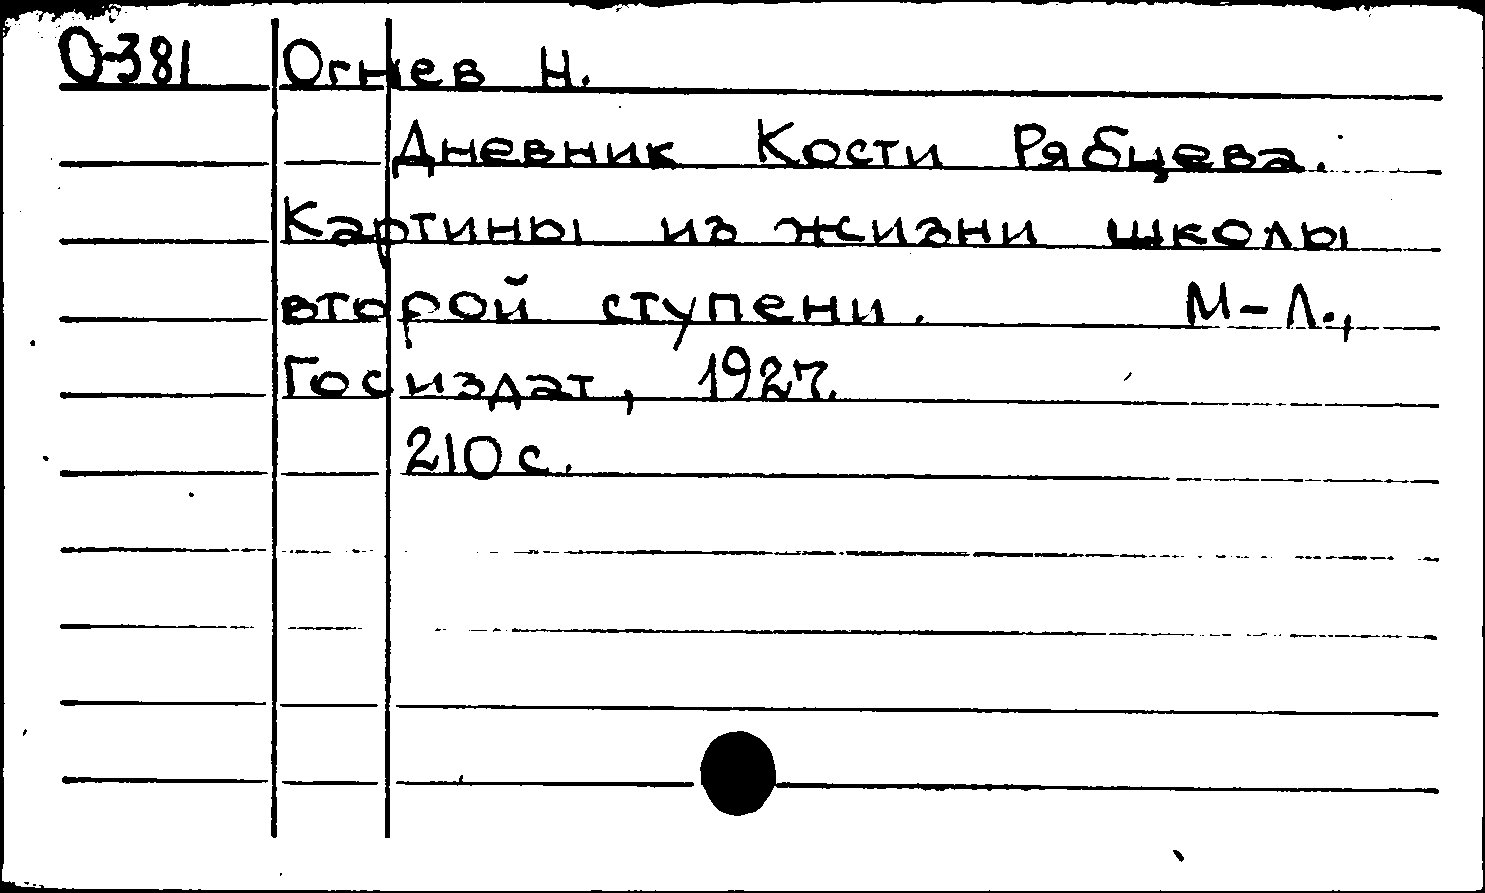 О-381 Огнев Н.
Дневник Кости Рябцева.
Картины из жизни школы
второй ступени. М-Л.,
Госиздат, 1927.
210 с.